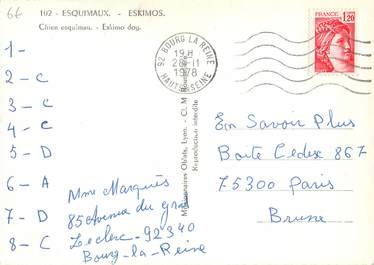 66
102 - ESQUIMAUX. - ESKIMOS.
Chien esquimau. - Eskimo dog.
92 BOURG LA REINE
19 H
28-11
1978
HAUTS DE SEINE
FRANCE
1,20
1-
2-C
3-C
4-C
5-D
6-A
7-D
8-C
Mme Marquès
85 Avenue du gral
Leclerc-92340
Bourg-la-Reine
Missionnaires Oblats, Lyon. - Cl. M
Reproduction interdite
En Savoir Plus
Boite Cedex 867
75300 Paris
Brune